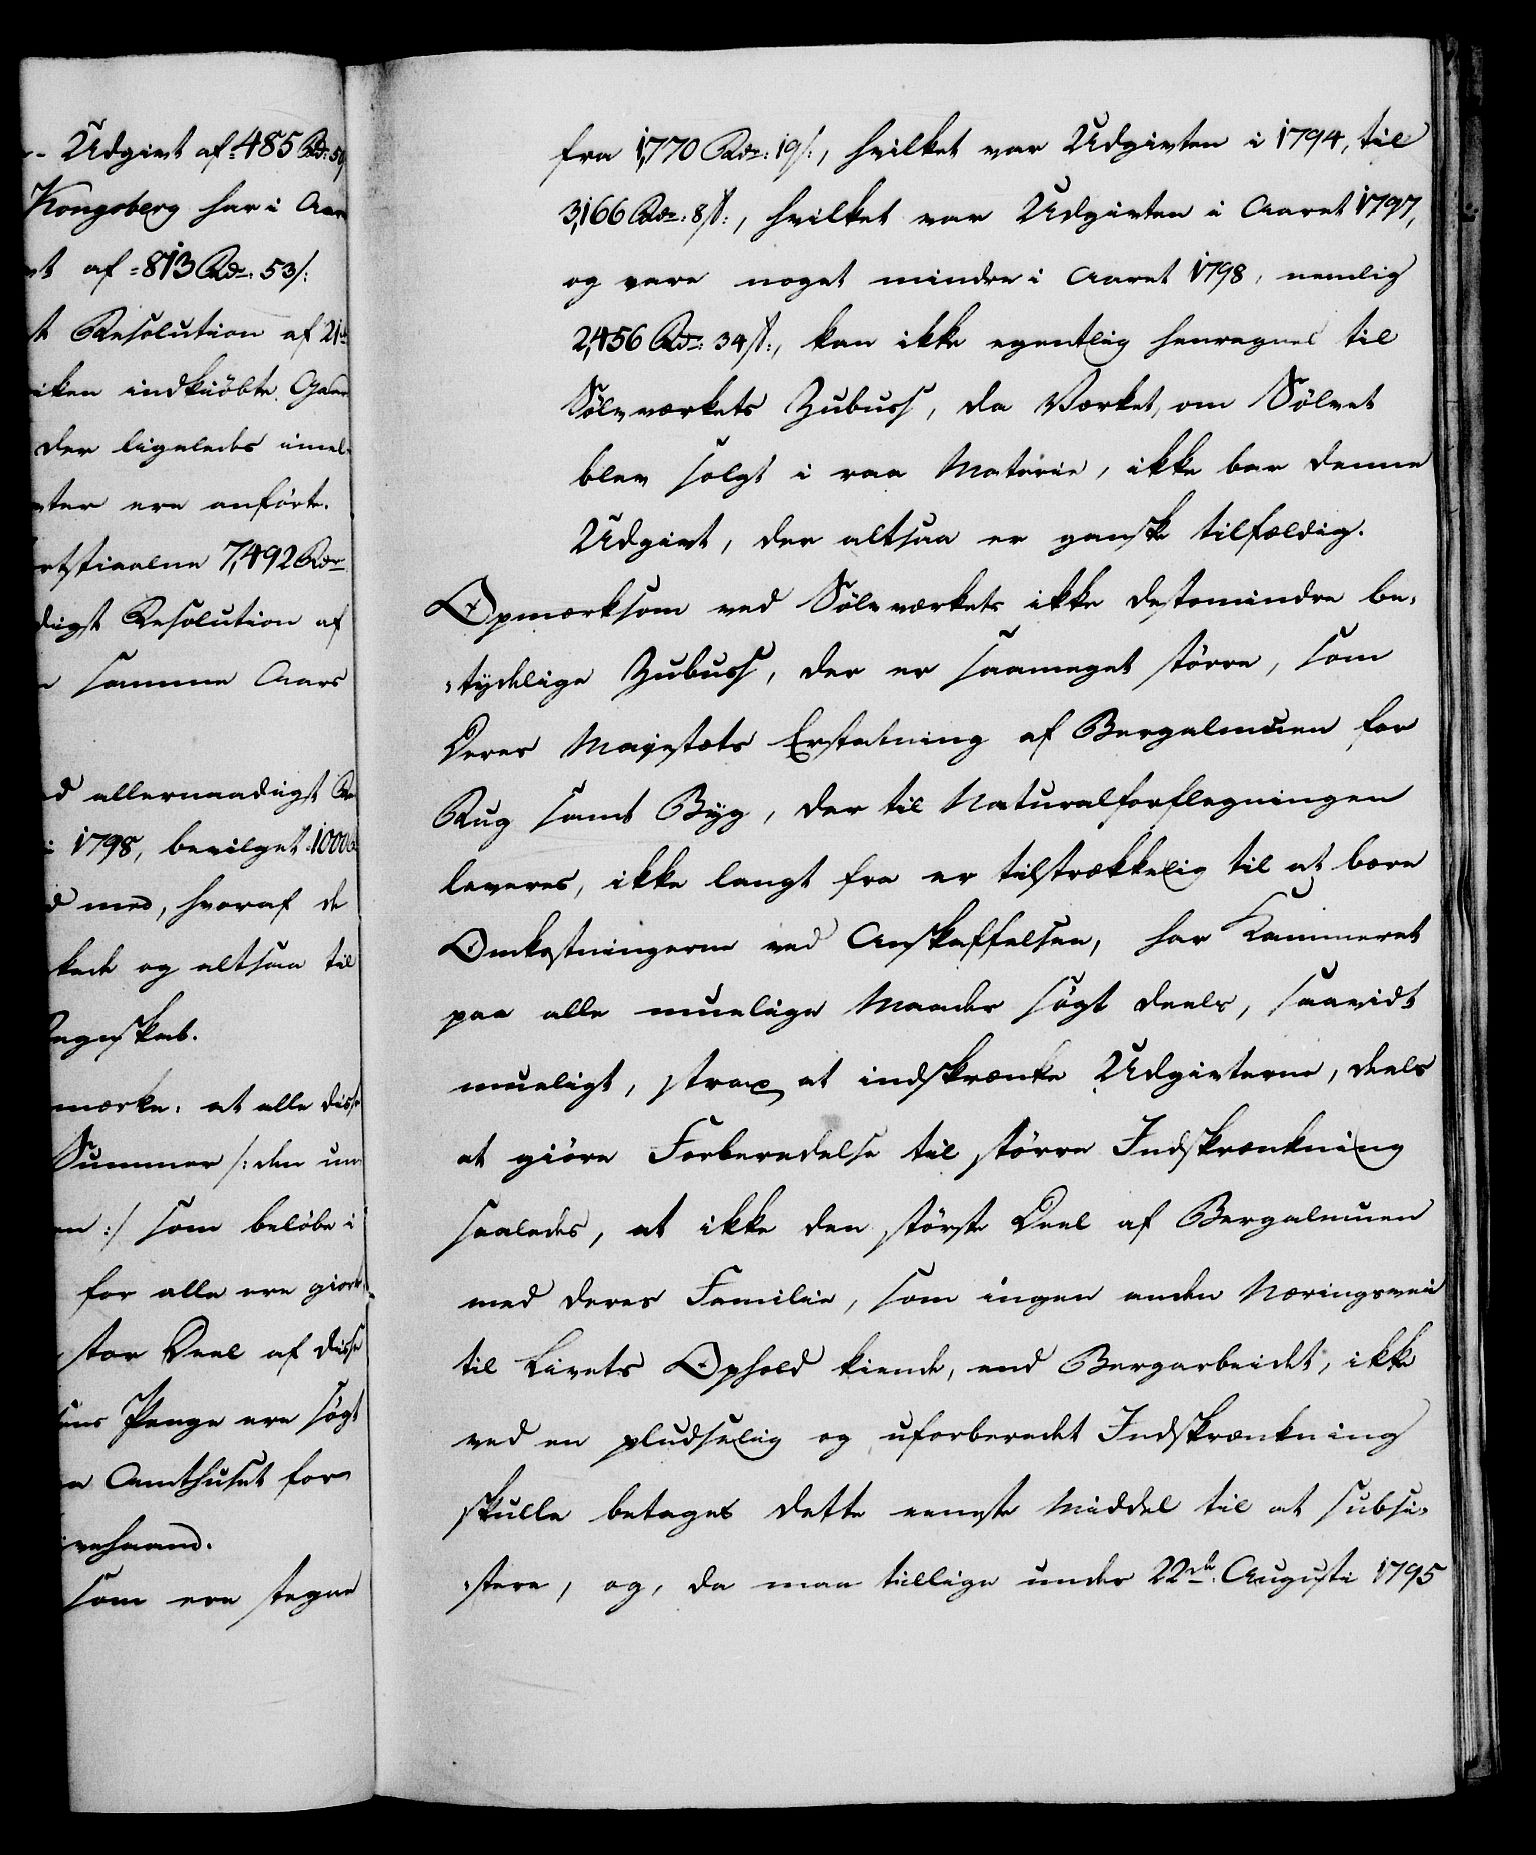 - Udgivt af 485 Rdr: 50
Kongsberg har i Aar
af 813 Rdr: 53 s:
Resolution af 21de
indkiöbte Gaar
der ligeledes imel-
ere anförte.
7,492 Rdr
Resolution af
samme Aars
allernaadigst
1798, bevilget 1000
med, hvoraf de
og altsaa til
Regnskab.
mærke: at alle disse
Summer /: den
:/ som beløbe i
for alle ere giort
stor Deel af disse
Penge ere søgt
Amthuset for
som ere stegne
fra 1,770 Rdr: 19 s:, hvilket var Udgivten i 1794, til
3,166 Rdr: 8 s:, hvilket var Udgivten i Aaret 1797,
og vare noget mindre i Aaret 1798, nemlig
2,456 Rdr: 34 s:, kan ikke egentlig henregnes til
Sölvværkets Zubuss, da Værket, om Sölvet
blev solgt i raa Materie, ikke bar denne
Udgivt, der altsaa er ganske tilfældig.
Opmærksom ved Sölvværkets ikke destomindre be-
-tydelige Zubuss, der er saameget större, som
Deres Majestæts Erstatning af Bergalmuen for
Rug samt Byg, der til Naturalforflegningen
leveres, ikke langt fra er tilstrækkelig til at bære
Omkostningerne ved Anskaffelsen, har Kammeret
paa alle muelige Maader sögt deels, saavidt
mueligt, strax at indskrænke Udgivterne, deels
at giöre Forberedelse til större Indskrænkning
saaledes, at ikke den störste Deel af Bergalmuen
med deres Familie, som ingen anden Næringsvei
til Livets Ophold kiende, end Bergarbeidet, ikke
ved en pludselig og uforberedet Indskrænkning
skulle betages dette eneste Middel til at subsi-
-stere, og, da man tillige under 22de Augusti 1795